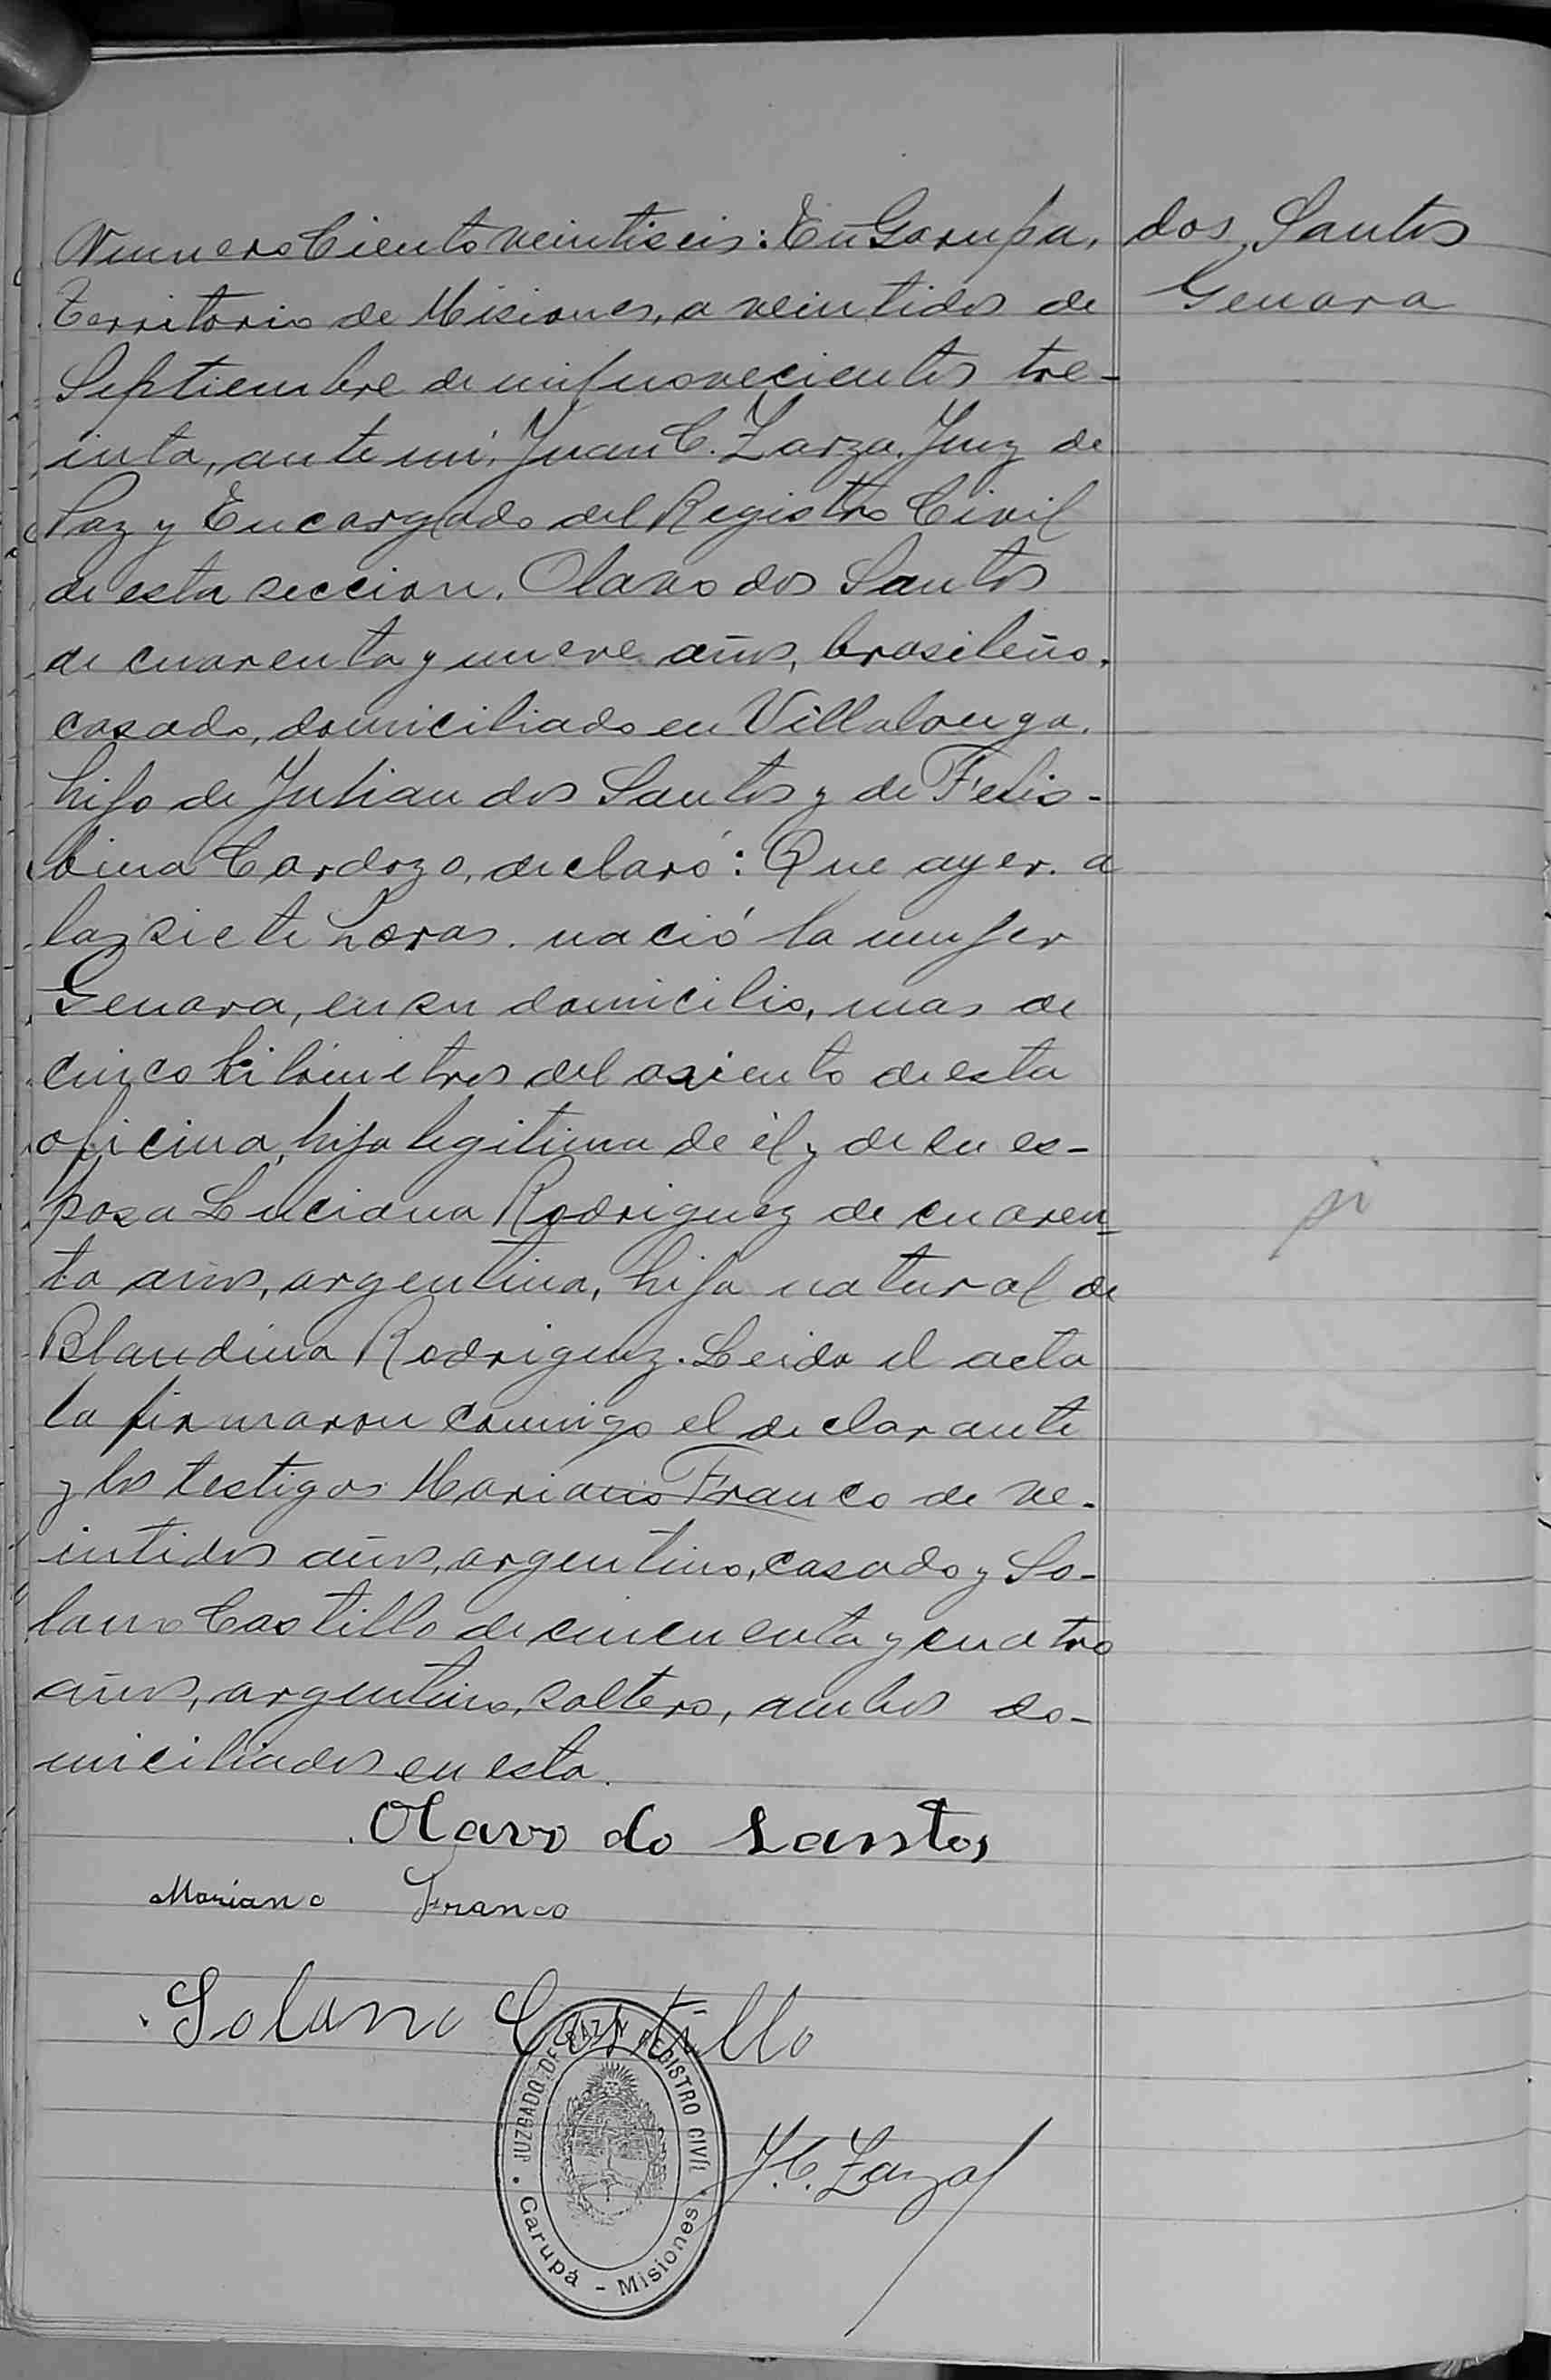 Numero Ciento veintiseis: En Garupa,
dos Santos
Territorio de Misiones, a veintidos de
Genara
Septiembre de mil novecientos tre-
inta, ante mi, Juan C. Zarza, Juez de
Paz y Encargado del Registro Civil
de esta seccion, Olavo dos Santos
de cuarenta y nueve años, brasileño,
casado, domiciliado en Villalonga,
hijo de Julian dos Santos y de Felis-
bina Cardozo, declaró: Que ayer, a
las siete horas, nació la mujer
Genara, en su domicilio, mas de
cinco kilómetros del asiento de esta
oficina, hija legitima de él y de su es-
posa Luciana Rodriguez de cuaren-
ta años, argentina, hija natural de
Blandina Rodriguez. Leida el acta
la firmaron conmigo el declarante
y los testigos Mariano Franco de ve-
intidos años, argentino, casado y So-
lano Castillo de cincuenta y cuatro
años, argentino, soltero, ambos do-
miciliados en esta.
Olavo do Santos
Mariano Franco
Solano Castillo
JUZGADO DE PAZ Y REGISTRO CIVIL
Garupá - Misiones
J. C. Zarza